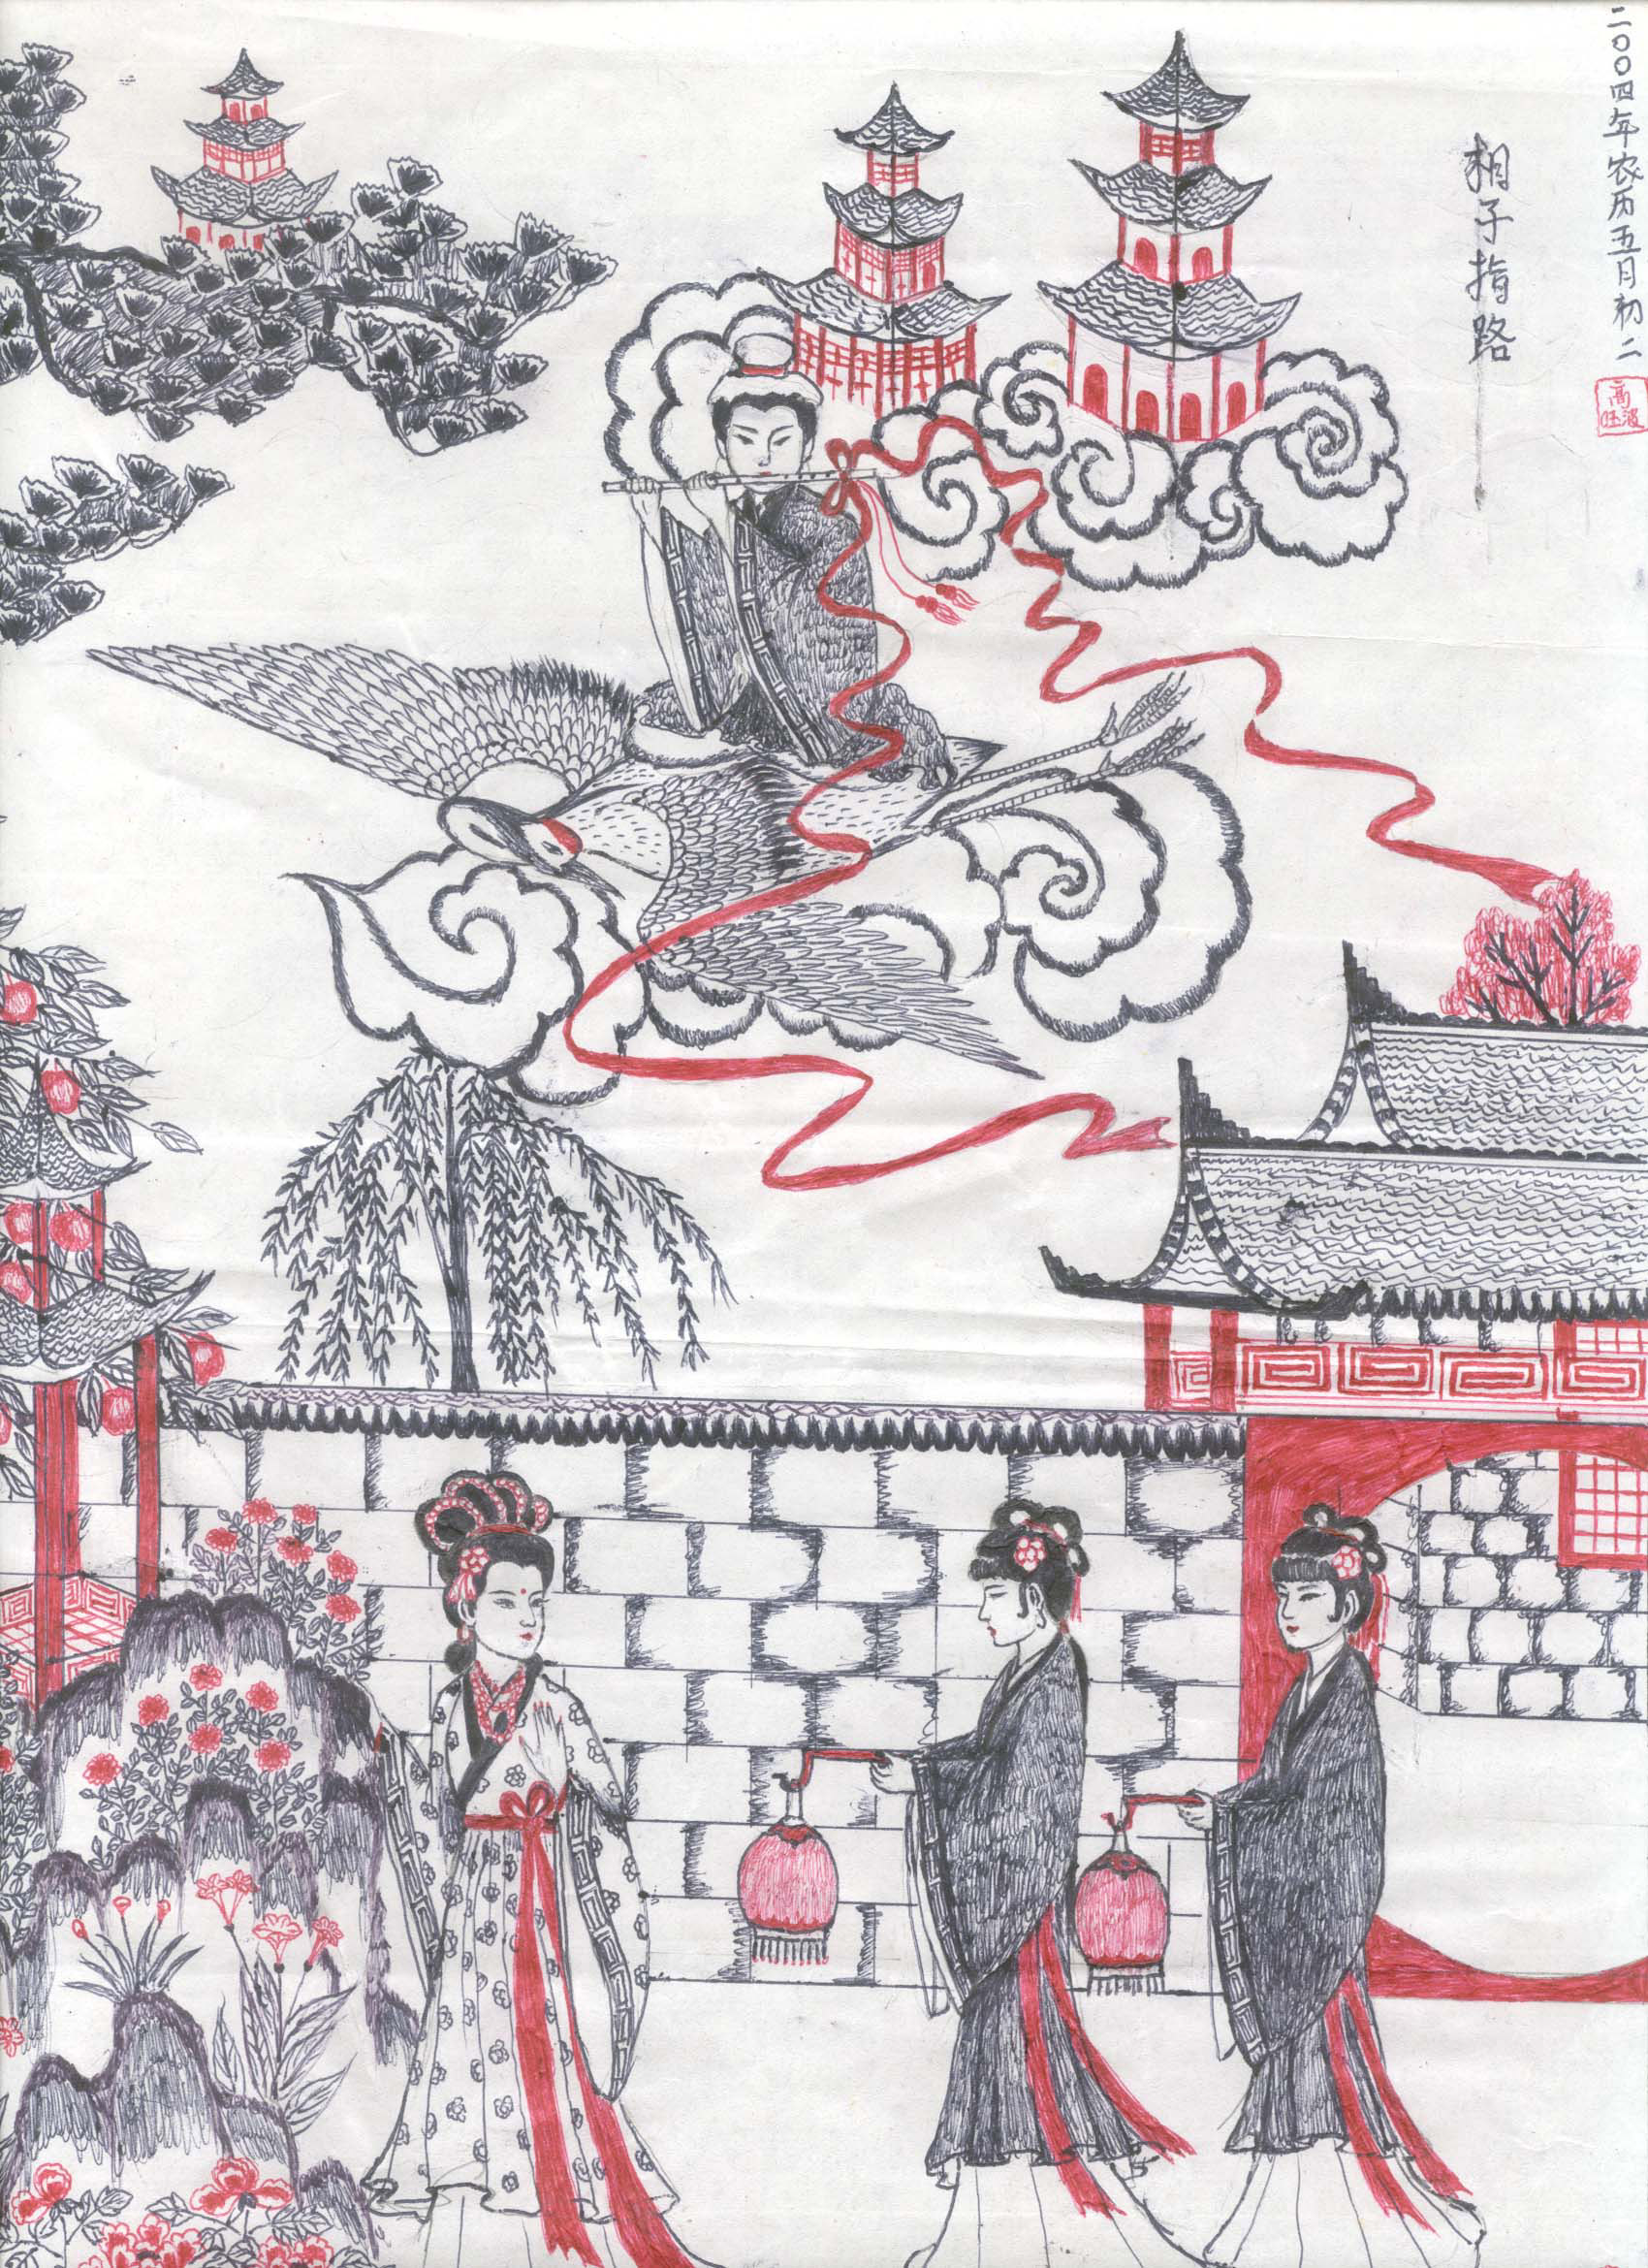 二〇〇四年农历五月初二
相子指路
高波